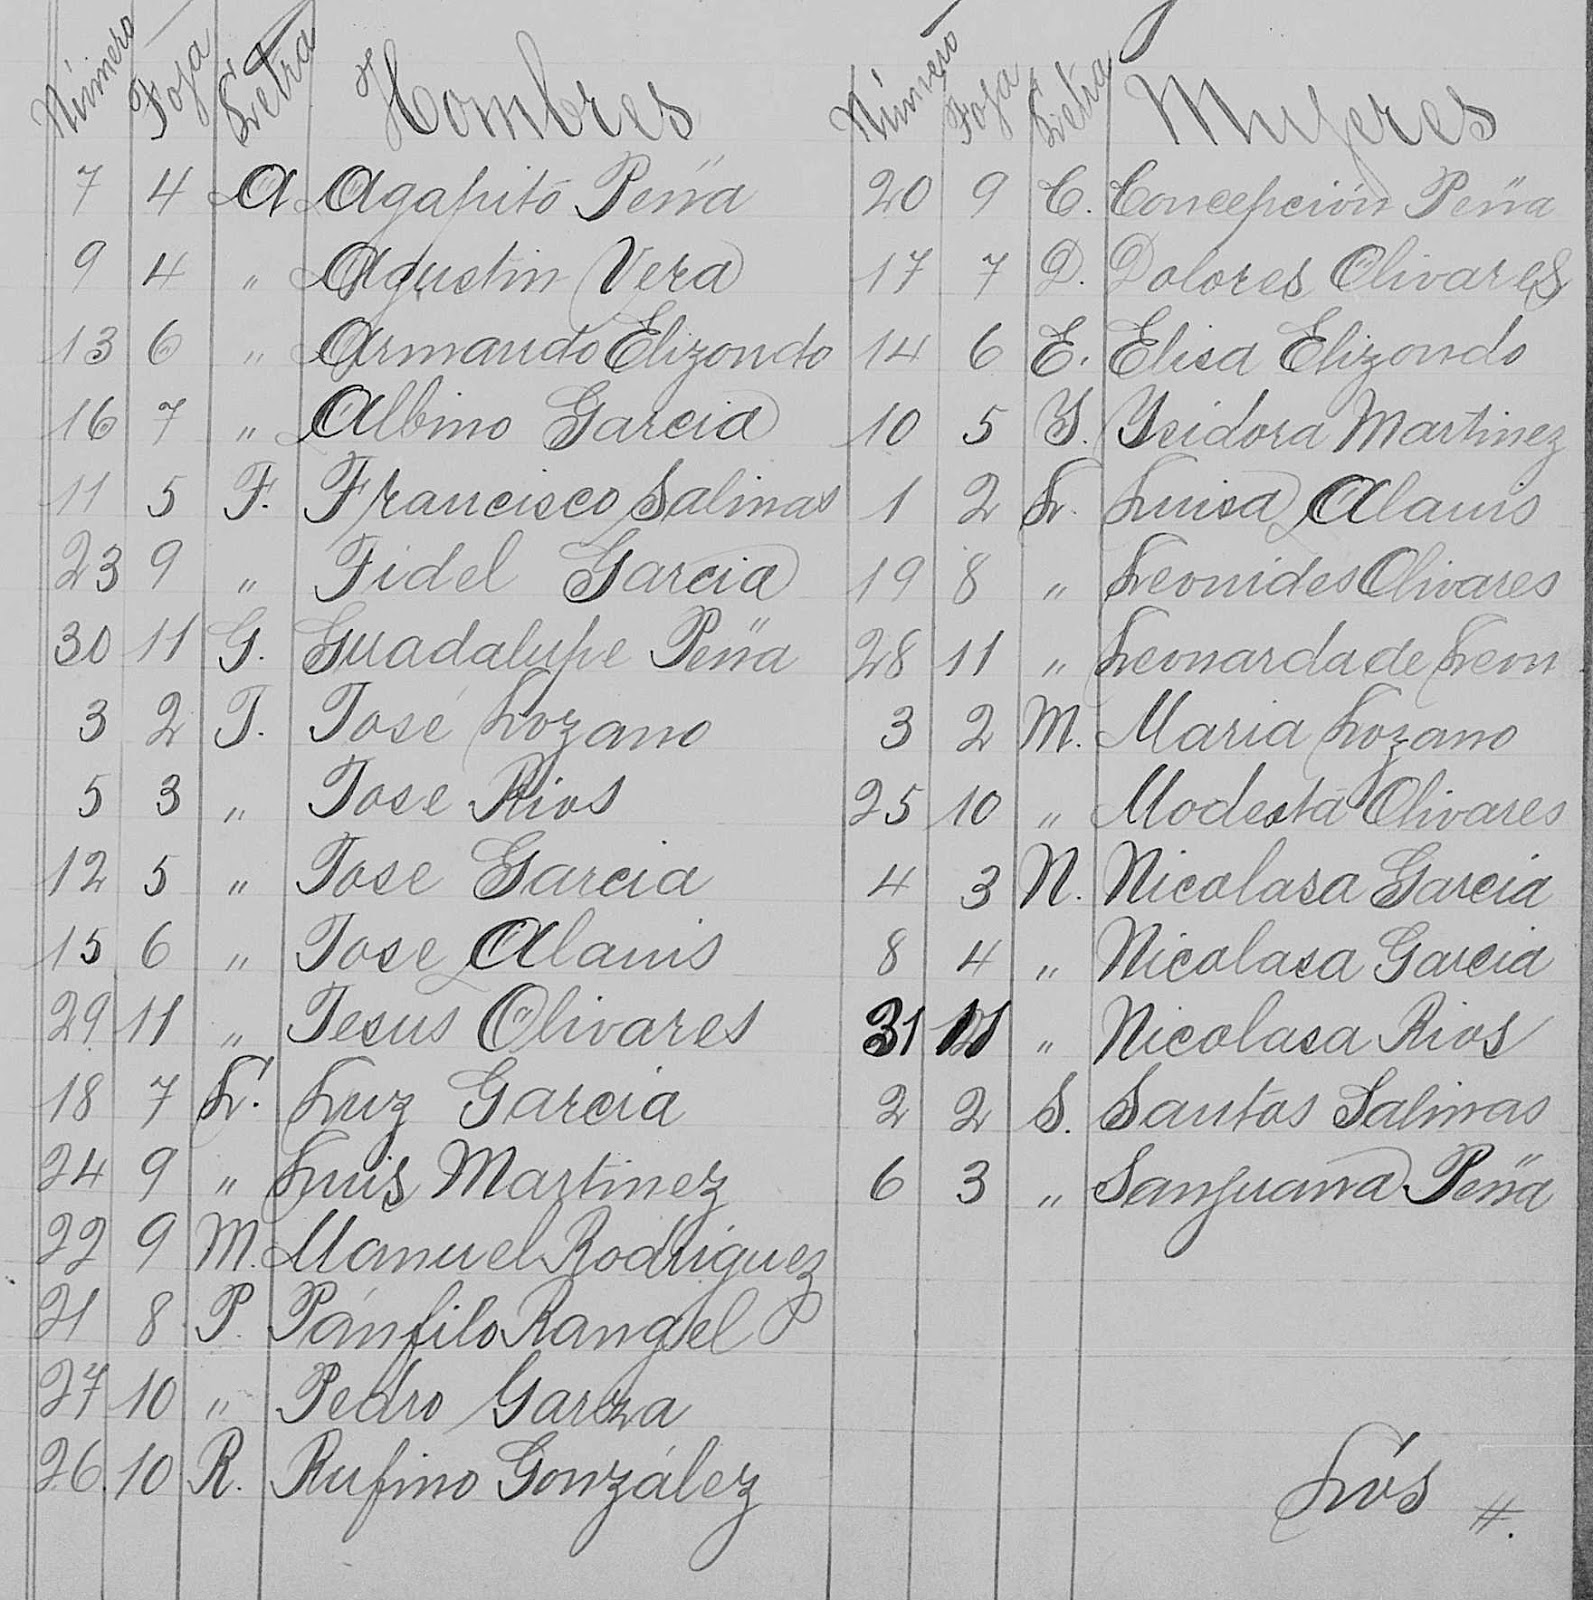 Número Foja Letra Hombres
7 4 A Agapito Peña
9 4 " Agustin Vera
13 6 " Armando Elizondo
16 7 " Albino Garcia
11 5 F. Francisco Salinas
23 9 " Fidel Garcia
30 11 G. Guadalupe Peña
3 2 J. José Lozano
5 3 " Jose Rios
12 5 " Jose Garcia
15 6 " Jose Alanis
29 11 " Jesus Olivares
18 7 L. Luz Garcia
24 9 " Luis Martinez
22 9 M. Manuel Rodriguez
21 8 P. Pánfilo Rangel
27 10 " Pedro Garza
26 10 R. Rufino González
Número Foja Letra Mujeres
20 9 C. Concepción Peña
17 7 D. Dolores Olivares
14 6 E. Elisa Elizondo
10 5 Y. Ysidora Martinez
1 2 L. Luisa Alanis
19 8 " Leonides Olivares
28 11 " Leonarda de Leon
3 2 M. Maria Lozano
25 10 " Modesta Olivares
4 3 N. Nicolasa Garcia
8 4 " Nicolasa Garcia
31 " Nicolasa Rios
2 2 S. Santos Salinas
6 3 " Sanjuana Peña